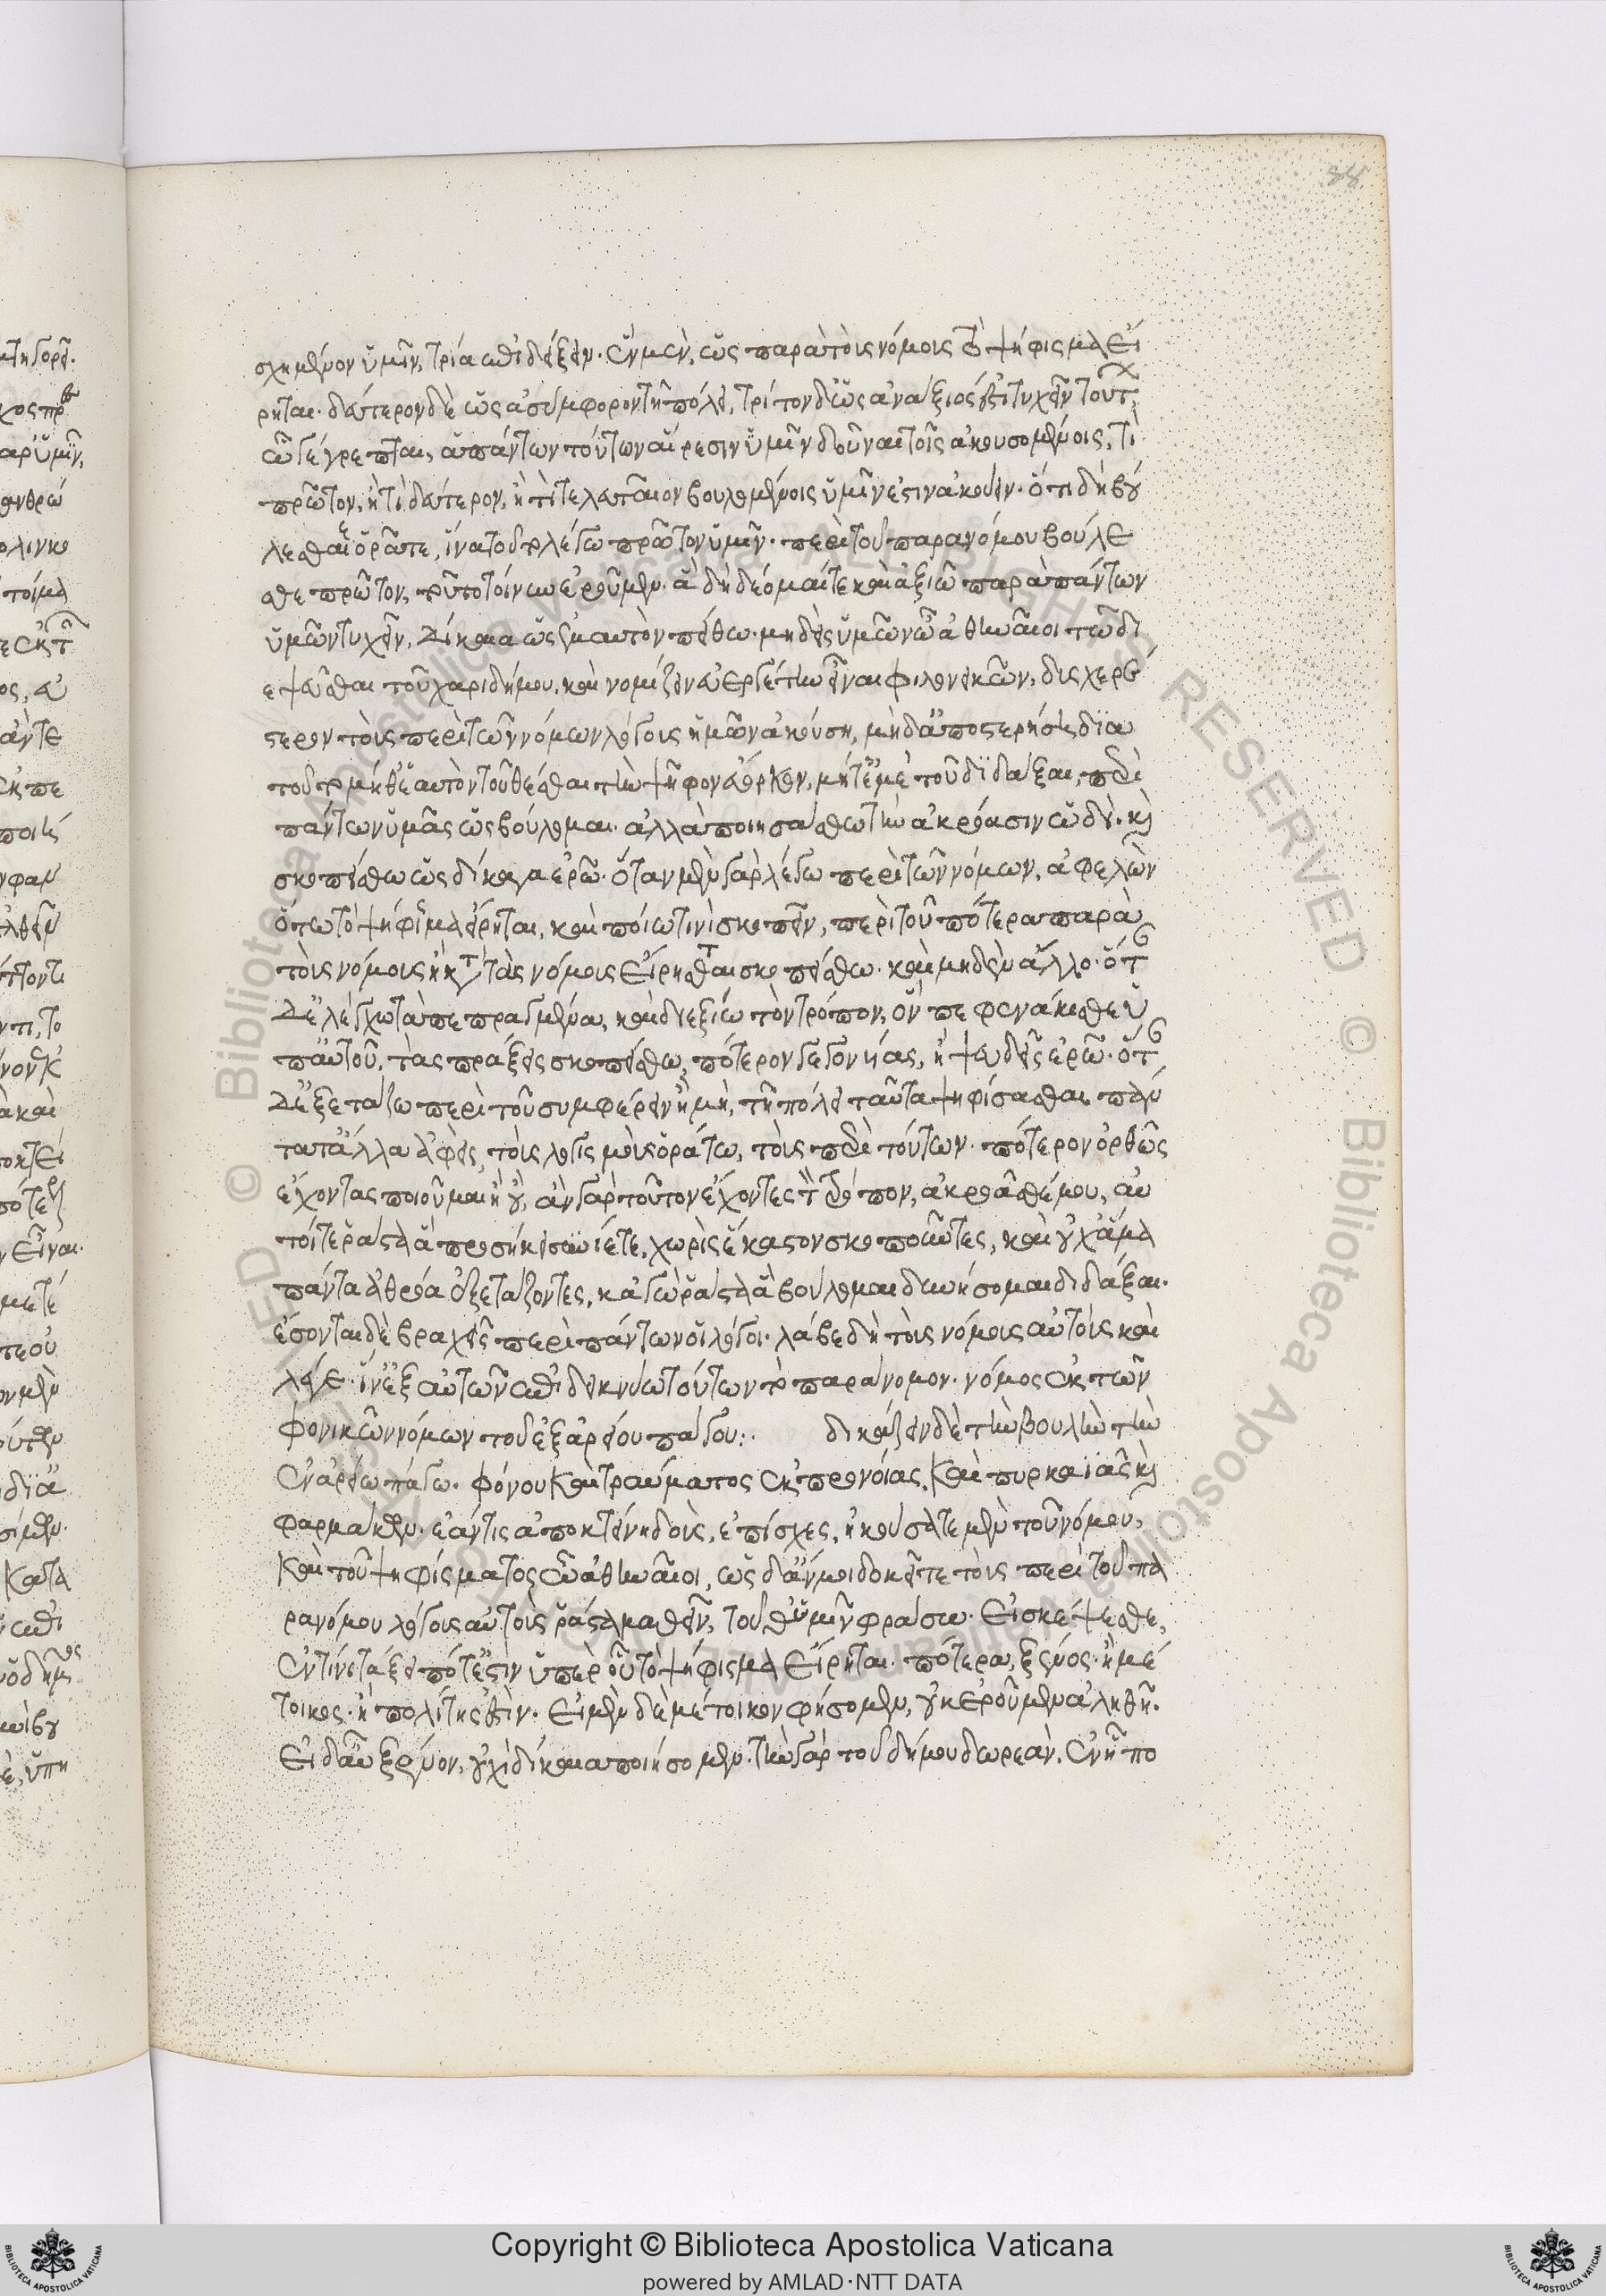 σχημένον ὑμῖν, τρία ἐπιδείξειν· ἓν μὲν, ὡς παρὰ τοὺς νόμους τὸ ψήφισμα εἴ
ρηται· δεύτερον δὲ ὡς ἀσύμφορον τῇ πόλει, τρίτον δ' ὡς ἀνάξιος ἐστὶ τυχεῖν τούτων
ὧ γέγραπται, ἁπάντων τούτων αἵρεσιν ὑμῖν δοῦναι τοῖς ἀκουσομένοις, τί
πρῶτον, ἢ τί δεύτερον, ἢ τί τελευταῖον βουλομένοις ὑμῖν ἐστιν ἀκούειν· ὅτι δὴ βού
λεσθαι ὁρᾶτε, ἵνα τοῦτο λέγω πρῶτον ὑμῖν· περὶ τοῦ παρανόμου βούλε
σθε πρῶτον, τοῦτο τοίνυν ἐροῦμεν· ἃ δὴ δέομαί τε καὶ ἀξιῶ παρὰ πάντων
ὑμῶν τυχεῖν, δίκαια ὡς ἐμαυτὸν πείθω· μηδεὶς ὑμῶν ὦ ἀθηναῖοι τῷ δι
εψεῦσθαι τοῦ χαριδήμου, καὶ νομίζειν εὐεργέτην εἶναι φιλονεικῶν, δυσχερέ
στερον τοὺς περὶ τῶν νόμων λόγους ἡμῶν ἀκούσῃ, μηδ' ἀποστερήσει διὰ
τοῦτο μήθ' ἑαυτὸν τοῦ θέσθαι τὴν ψῆφον εὔορκον, μήτ' ἐμὲ τοῦ διδάξαι, περὶ
πάντων ὑμᾶς ὡς βούλομαι· ἀλλὰ ποιησάσθω τὴν ἀκρόασιν ὡδὶ· καὶ
σκοπείσθω ὡς δίκαια ἐρῶ· ὅταν μὲν γὰρ λέγω περὶ τῶν νόμων, ἀφελὼν
ὅτῳ τὸ ψήφισμα εἴρηται, καὶ ποίῳ τινὶ σκοπεῖν, περὶ τοῦ πότερα παρὰ
τοὺς νόμους ἢ κατὰ τοὺς νόμους εἴρηται σκοπείσθω· καὶ μηδὲν ἄλλο· ὅταν
δ' ἐλέγχω τὰ πεπραγμένα, καὶ διεξίω τὸν τρόπον, ὃν πεφενάκισθε ὑ
π' αὐτοῦ, τὰς πράξεις σκοπείσθω, πότερον γεγονυίας, ἢ ψευδεῖς ἐρῶ· ὅταν
δ' ἐξετάζω περὶ τοῦ συμφέρειν ἢ μὴ, τῇ πόλει ταῦτα ψηφίσασθαι, πάν
τα τἄλλα ἀφεὶς, τοὺς λογισμοὺς ὁράτω, τοὺς περὶ τούτων· πότερον ὀρθῶς
ἔχοντας ποιοῦμαι ἢ οὔ, ἂν γὰρ τοῦτον ἔχοντες τὸν τρόπον, ἀκροᾶσθέ μου, αὐ
τοί τε ῥᾷστα ἃ προσήκει συνίετε, χωρὶς ἕκαστον σκοποῦντες, καὶ οὐχ ἅμα
πάντα ἀθρόα ἐξετάζοντες, κἀγὼ ῥᾷστα ἃ βούλομαι δυνήσομαι διδάξαι·
ἔσονται δὲ βραχεῖς περὶ πάντων οἱ λόγοι· λάβε δὴ τοὺς νόμους αὐτοὺς καὶ
λέγε· ἵν' ἐξ αὐτῶν ἐπιδεικνύω τούτων τὸ παράνομον· νόμος ἐκ τῶν
φονικῶν νόμων τοῦ ἐξ ἀρείου πάγου:· δικάζειν δὲ τὴν βουλὴν τὴν
ἐν ἀρείῳ πάγῳ· φόνου καὶ τραύματος ἐκ προνοίας, καὶ πυρκαϊᾶς καὶ
φαρμάκων· ἐάν τις ἀποκτείνῃ δοὺς, ἐπίσχες, ἠκούσατε μὲν τοῦ νόμου,
καὶ τοῦ ψηφίσματος ὦ ἀθηναῖοι, ὡς δ' ἄν μοι δοκεῖτε τοὺς περὶ τοῦ πα
ρανόμου λόγους αὐτοὺς ῥᾷστα μαθεῖν, τοῦθ' ὑμῖν φράσω· εἰ σκέψεσθε,
ἐν τίνι τάξει πότ' ἐστὶν ὑπὲρ οὗ τὸ ψήφισμα εἴρηται· πότερα, ξένος· ἢ μέ
τοικος· ἢ πολίτης ἐστίν· εἰ μὲν δὲ μέτοικον φήσομεν, οὐκ ἐροῦμεν ἀληθῆ·
εἰ δ' αὖ ξένον, οὐχὶ δίκαια ποιήσομεν· τὴν γὰρ τοῦ δήμου δωρεὰν, ἐν ᾗ πο
Copyright © Biblioteca Apostolica Vaticana
powered by AMLAD·NTT DATA